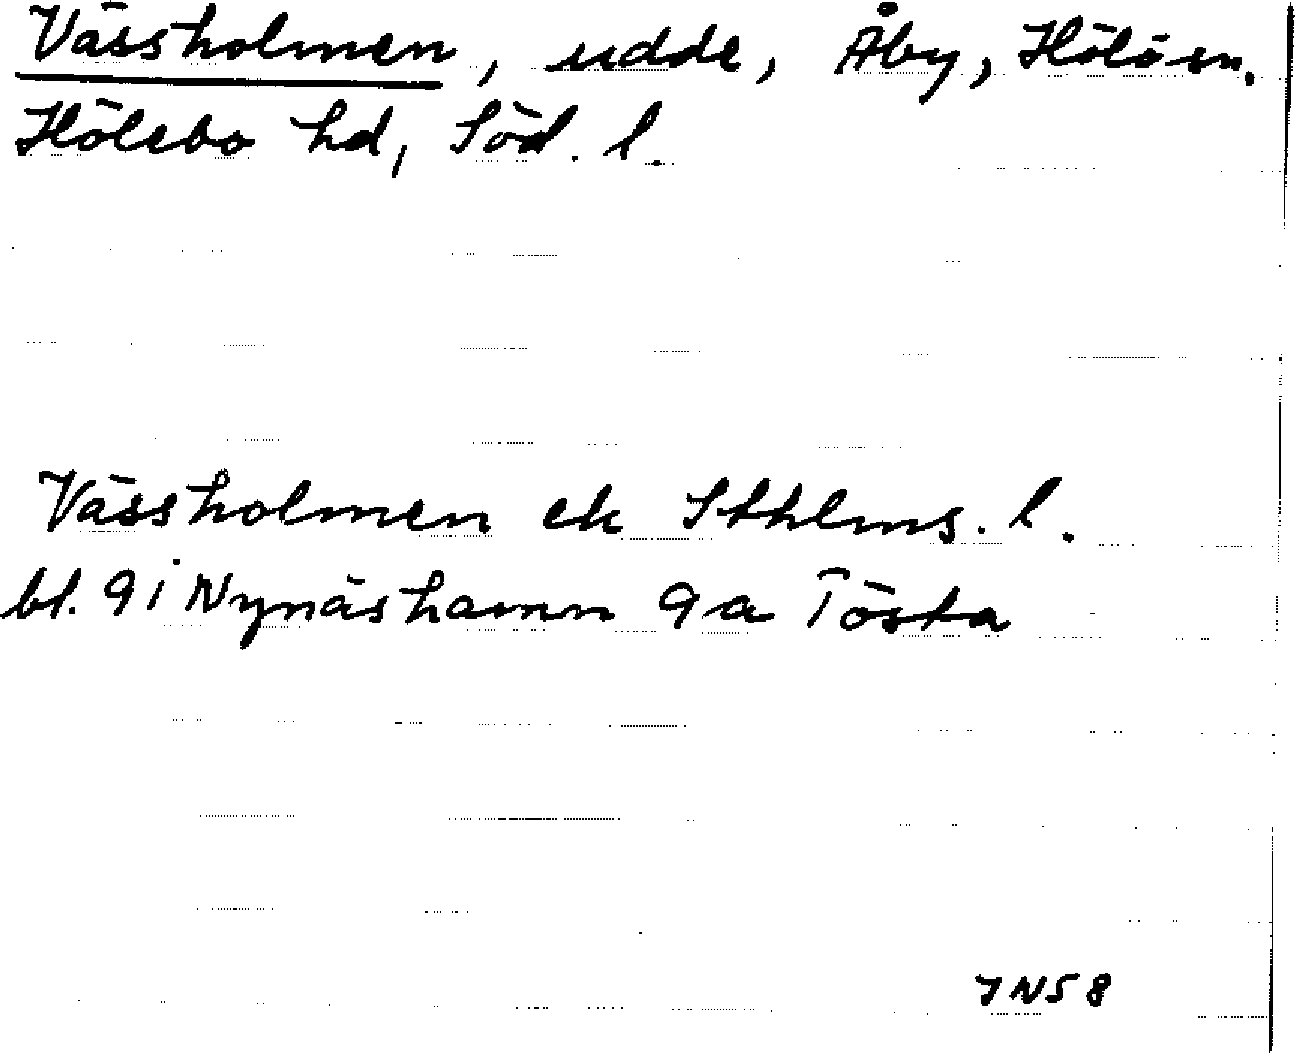 Vässholmen, udde, Åby, Hölö sn.
Hölebo hd, Söd. l.
Vässholmen ek Sthlms. l.
bl. 9 i Nynäshamn 9a Tösta
7 N 5 8